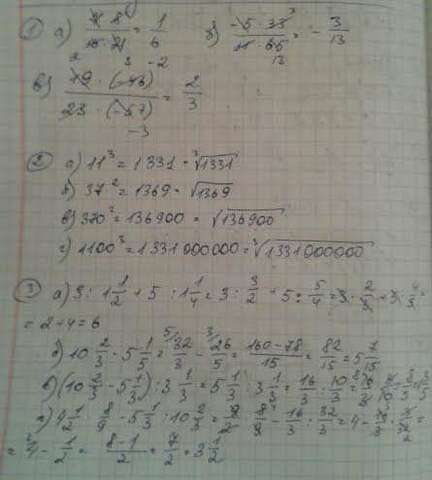 ① а) = 1/6 б) (-5 · 33)/(11 · 65) = - 3/13
в) = 2/3
② а) 11³ = 1331 = ³√1331
б) 37² = 1369 = √1369
в) 370² = 136900 = √136900
г) 1100³ = 1331000000 = ³√1331000000
③ а) 3 : 1 1/2 + 5 : 1 1/4 = 3 : 3/2 + 5 : 5/4 =
= 2 + 4 = 6
б) 10 2/3 - 5 1/5 = 32/3 - 26/5 = (160 - 78)/15 = 82/15 = 5 7/15
- 5 1/3) : 3 1/3 = 5 1/3 : 3 1/3 = 16/3 : 10/3 =
г) 4 1/2 · 8/9 - 5 1/3 : 10 2/3 = 9/2 · 8/9 - 16/3 : 32/3 = 4 -
= 4 - 1/2 = (8 - 1)/2 = 7/2 = 3 1/2